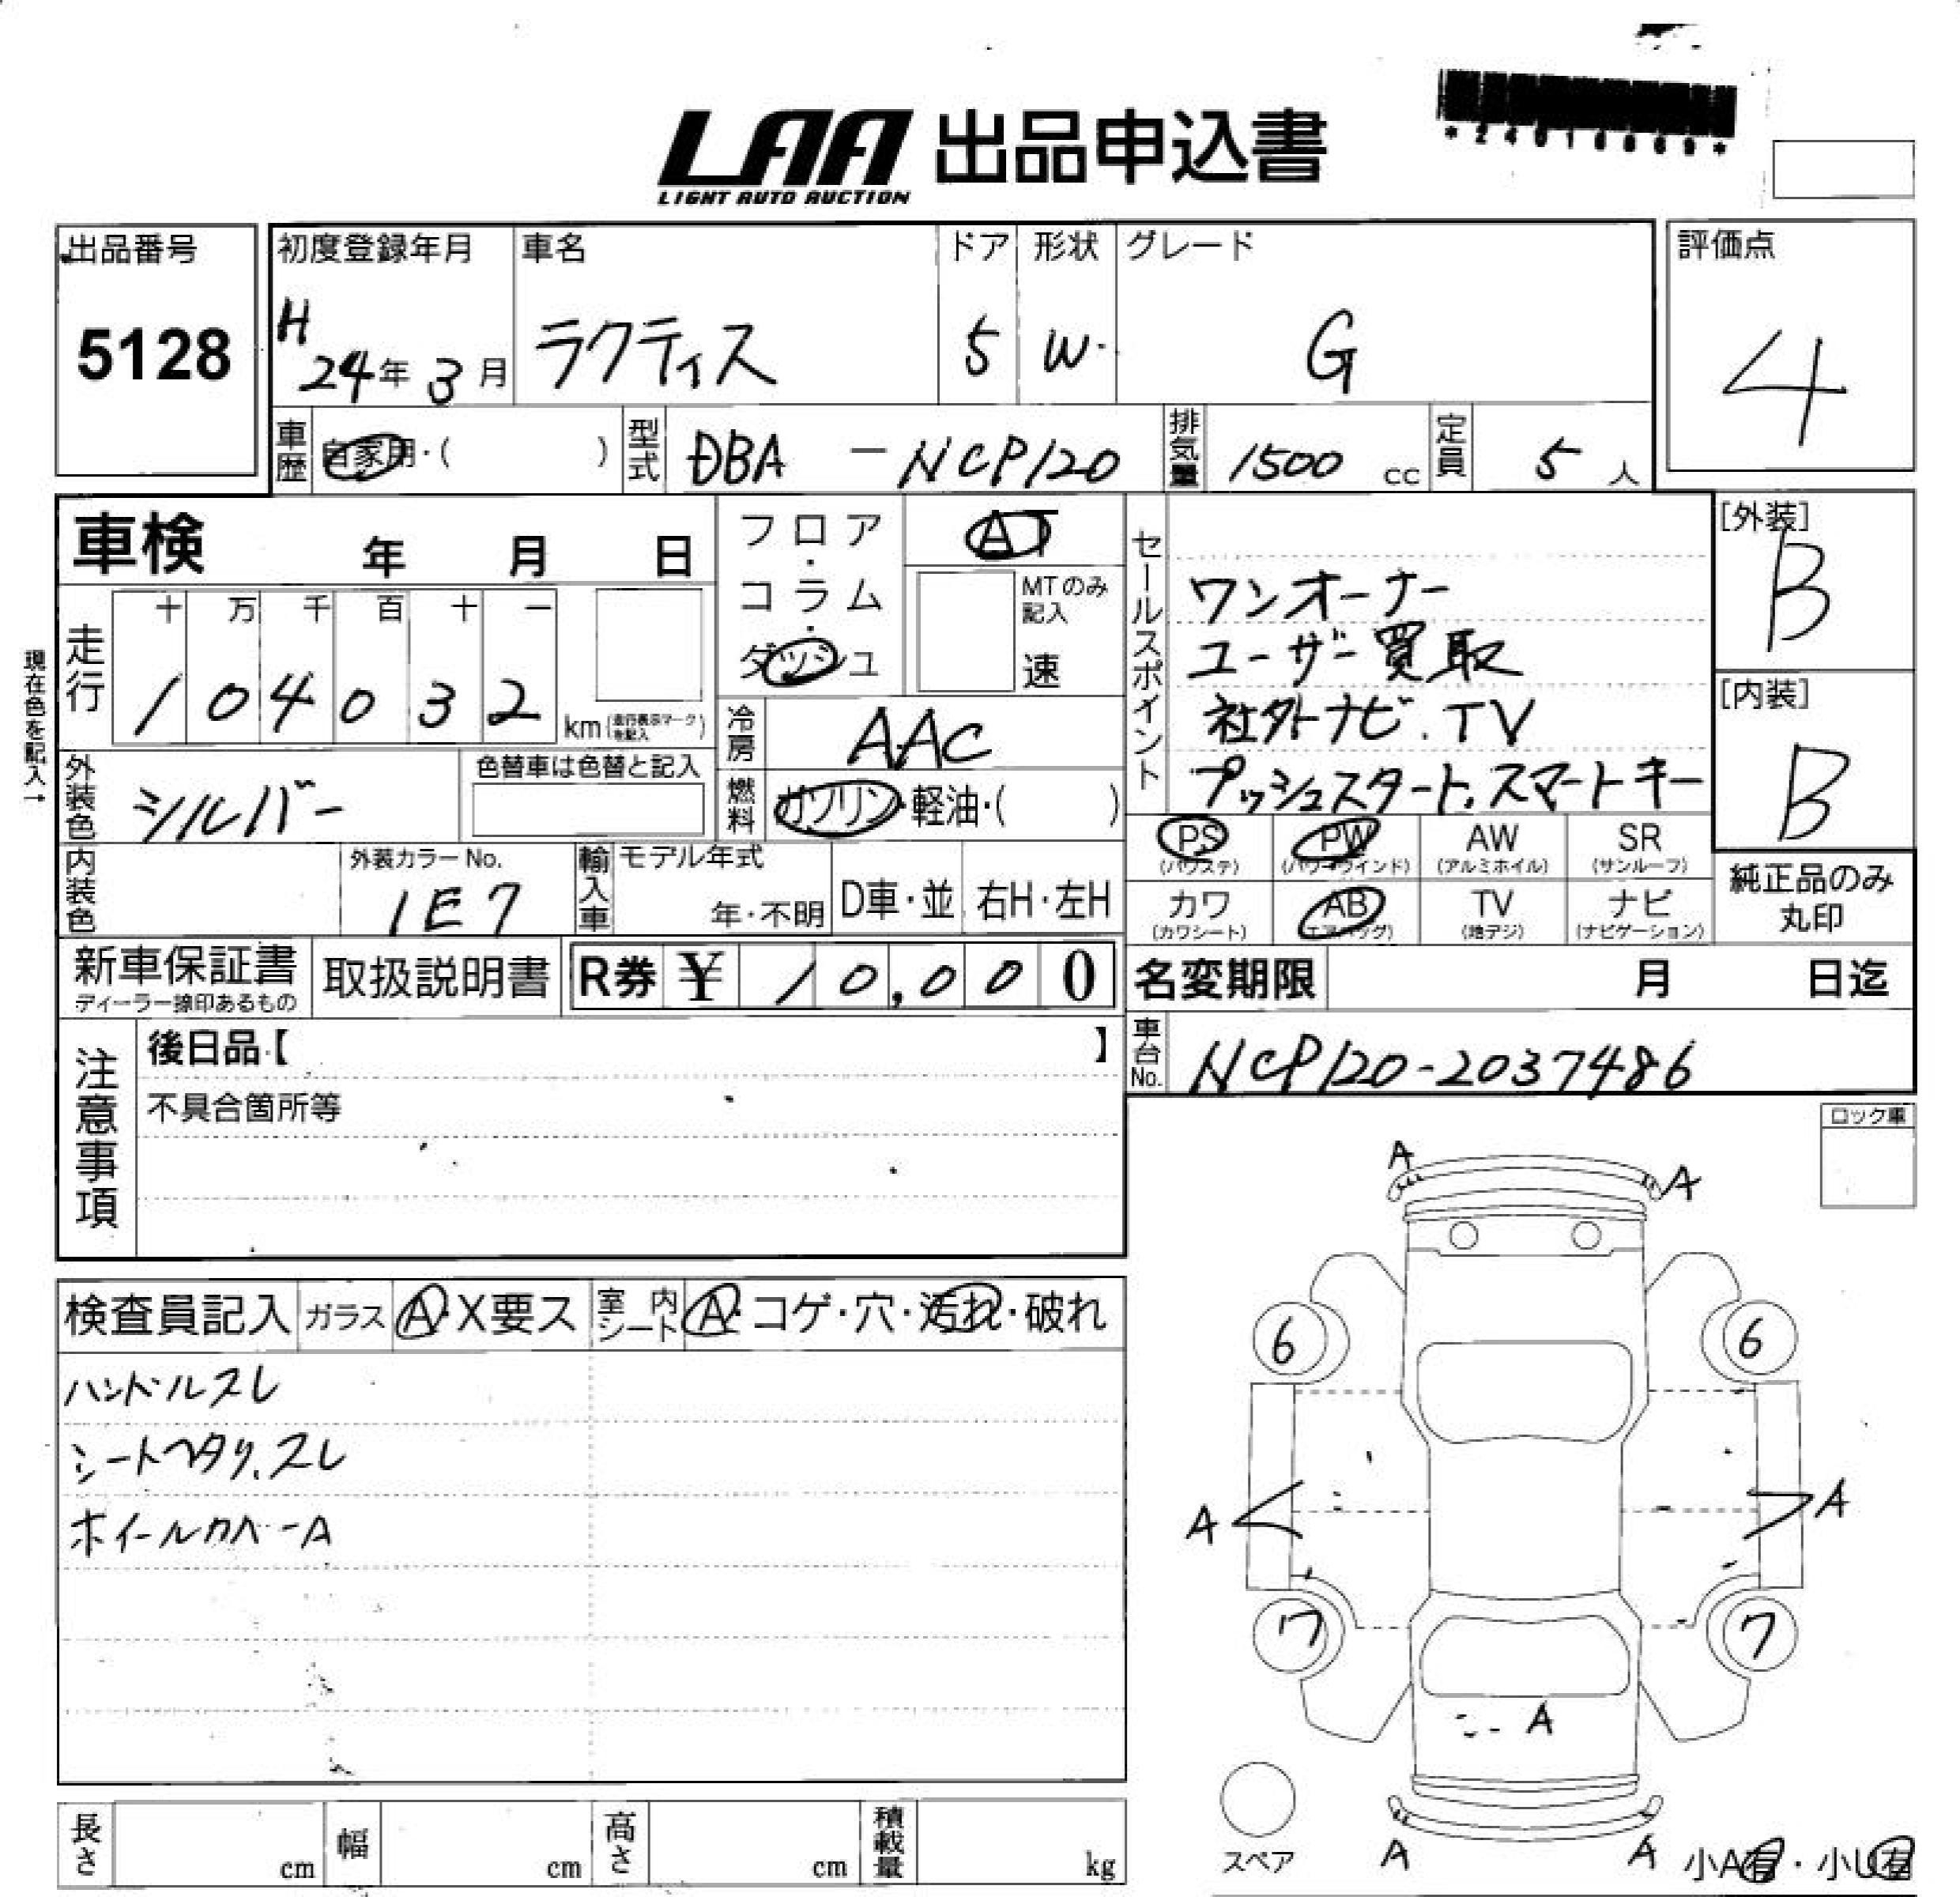 *24016869*
LAA 出品申込書
LIGHT AUTO AUCTION
出品番号
5128
初度登録年月
H
24年 3月
車名
ラクティス
ドア
5
形状
W
グレード
G
評価点
4
車歴 自家用・( )
型式 DBA - NCP120
排気量 1500 cc
定員 5 人
車検 年 月 日
フロア・コラム・ダッシュ
AT
MTのみ記入
速
セールスポイント
ワンオーナー
ユーザー買取
社外ナビ.TV
プッシュスタート.スマートキー
[外装]
B
[内装]
B
現在色を記入→
走行
十 万 千 百 十 一
1 0 4 0 3 2 km (走行表示マークを記入)
冷房 AAC
外装色 シルバー
色替車は色替と記入
燃料 ガソリン・軽油・( )
PS (パワステ)
PW (パワーウインド)
AW (アルミホイル)
SR (サンルーフ)
純正品のみ丸印
内装色
外装カラーNo.
1E7
輸入車
モデル年式
年・不明
D車・並
右H・左H
カワ (カワシート)
AB (エアバッグ)
TV (地デジ)
ナビ (ナビゲーション)
新車保証書
ディーラー捺印あるもの
取扱説明書
R券 ¥ 10,000
名変期限 月 日迄
車台No. NCP120-2037486
注意事項
後日品【 】
不具合箇所等
ロック車
A
A
検査員記入
ガラス A・X要ス
室内シート A・コゲ・穴・汚れ・破れ
ハンドルスレ
シートヘタリ、スレ
ホイールカバーA
6
6
A
A
7
7
A
スペア
A
A
小A有・小U有
長さ cm
幅 cm
高さ cm
積載量 kg